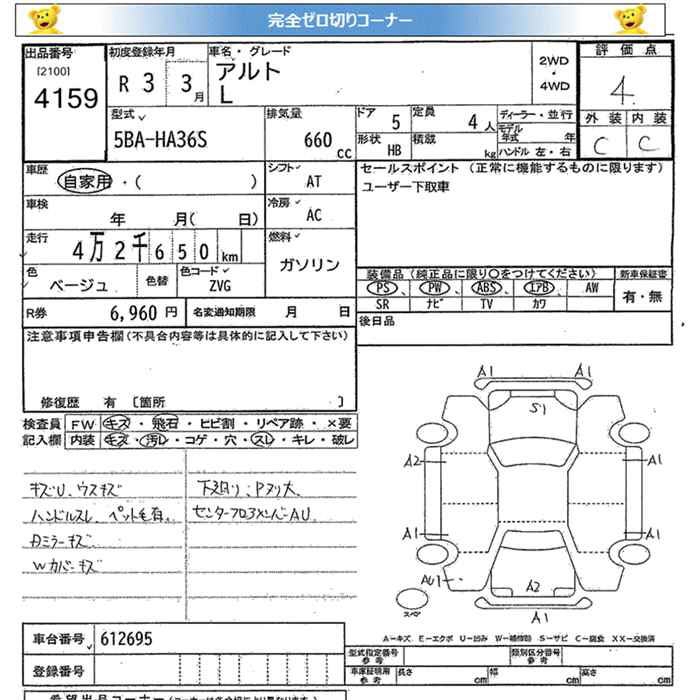 完全ゼロ切りコーナー
出品番号 初度登録年月 車名・グレード 評価点
[2100] 4159
R 3 3月
アルト
L
2WD・4WD
4
型式 5BA-HA36S
排気量 660 cc
ドア 5 定員 4人 ディーラー・並行
モデル年式 年
形状 HB 積載 kg ハンドル 左・右
外装 内装
C C
車歴 自家用・( )
シフト AT
セールスポイント (正常に機能するものに限ります)
ユーザー下取車
車検 年 月( 日)
冷房 AC
走行 4万2千650km
燃料 ガソリン
色 ベージュ 色替 色コード ZVG
装備品(純正品に限り○をつけてください) 新車保証書
PS、 PW、 ABS、 エアB、 AW
SR ナビ TV カワ
有・無
R券 6,960円 名変通知期限 月 日
後日品
注意事項申告欄(不具合内容等は具体的に記入して下さい)
修復歴 有 [箇所 ]
検査員記入欄
FW キズ・飛石・ヒビ割・リペア跡・×要
内装 キズ・汚レ・コゲ・穴・スレ・キレ・破レ
キズU、ウスキズ
ハンドルスレ、ペット毛有。
Rミラーキズ
Wカバーキズ
下廻り;Pヌリ大
センターフロアメンバーAU。
A1 A1
S1
A2 A1
A1 A1
AU1
A2
A1
スペア
A-キズ E-エクボ U-凹み W-補修跡 S-サビ C-腐食 XX-交換済
車台番号 612695
登録番号
型式指定番号 参考 類別区分番号 参考
車庫証明用 参考 長さ cm 幅 cm 高さ cm
希望出品コーナー